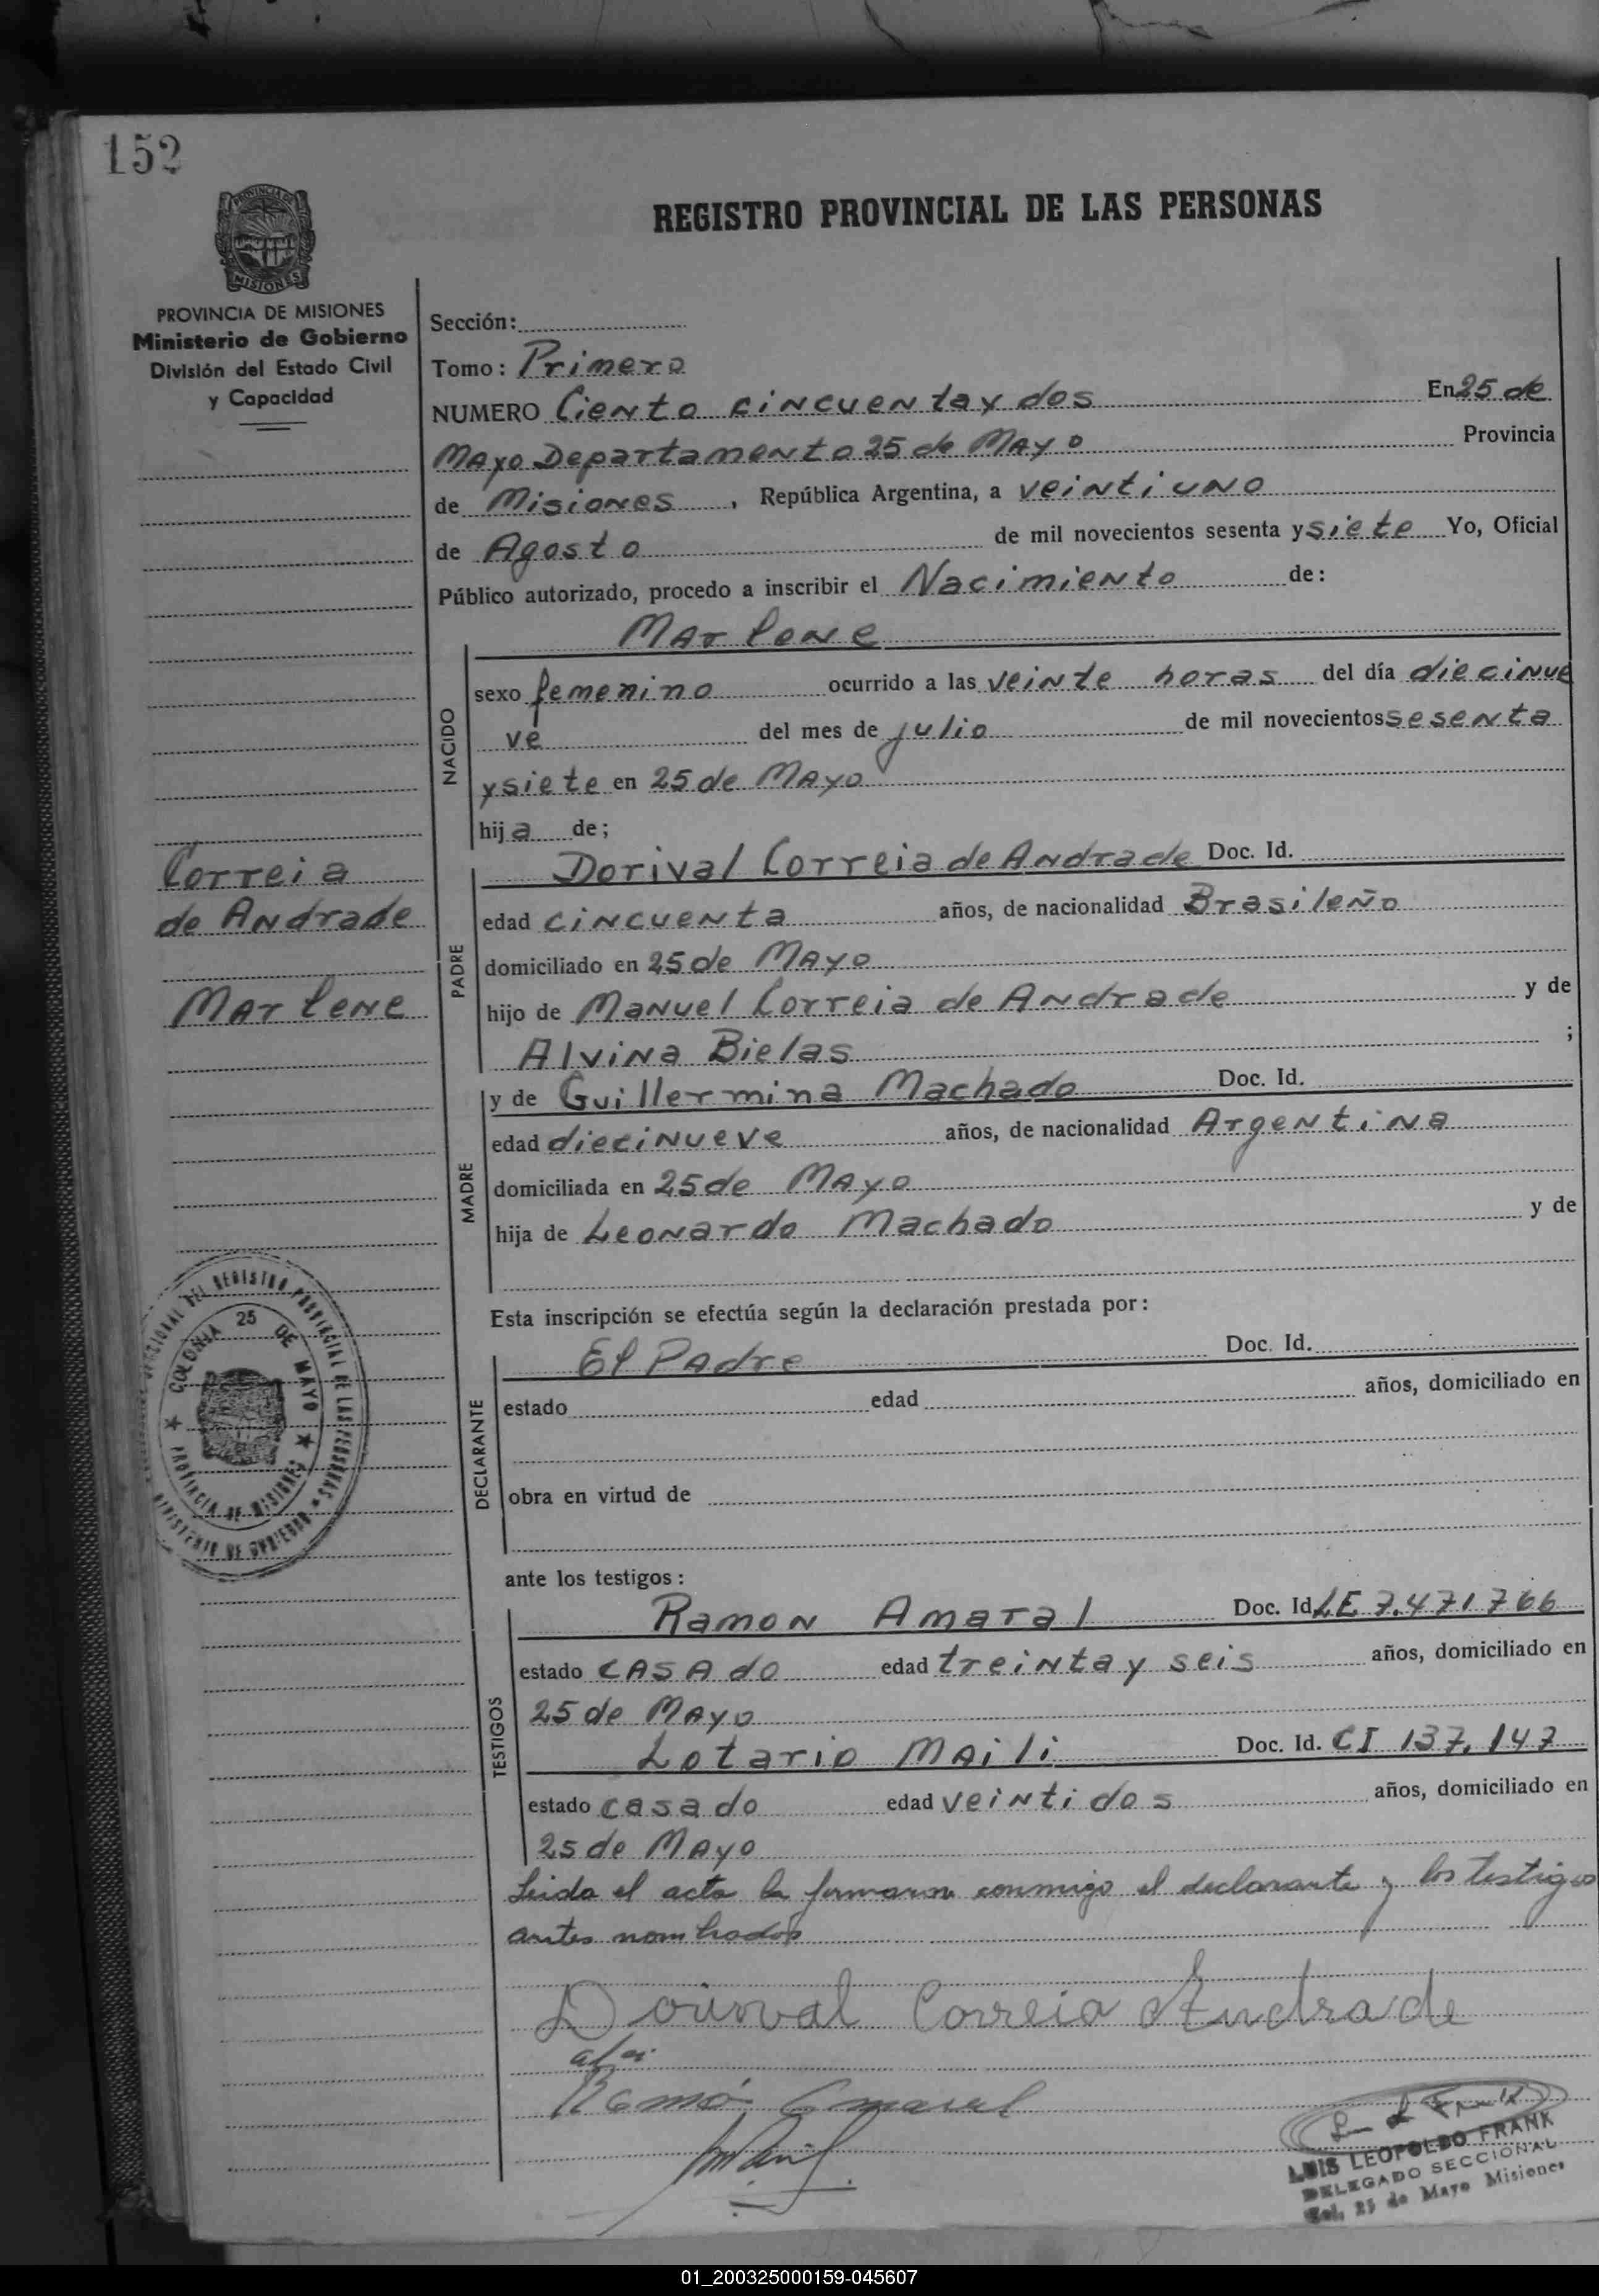 152
PROVINCIA DE
MISIONES
REGISTRO PROVINCIAL DE LAS PERSONAS
PROVINCIA DE MISIONES
Ministerio de Gobierno
División del Estado Civil
y Capacidad
Sección:
Tomo: Primero
NUMERO Ciento cincuenta y dos En 25 de
Mayo Departamento 25 de Mayo Provincia
de Misiones, República Argentina, a veintiuno
de Agosto de mil novecientos sesenta y siete Yo, Oficial
Público autorizado, procedo a inscribir el Nacimiento de:
Marlene
NACIDO
sexo femenino ocurrido a las veinte horas del día diecinue
ve del mes de julio de mil novecientos sesenta
y siete en 25 de Mayo
hija de;
Correia
de Andrade
Marlene
PADRE
Dorival Correia de Andrade Doc. Id.
edad cincuenta años, de nacionalidad Brasileño
domiciliado en 25 de Mayo
hijo de Manuel Correia de Andrade y de
Alvina Bielas ;
MADRE
y de Guillermina Machado Doc. Id.
edad diecinueve años, de nacionalidad Argentina
domiciliada en 25 de Mayo
hija de Leonardo Machado y de
Esta inscripción se efectúa según la declaración prestada por:
DECLARANTE
El Padre Doc. Id.
estado edad años, domiciliado en
obra en virtud de
SECCIONAL DEL REGISTRO PROVINCIAL DE LAS PERSONAS
COLONIA 25 DE MAYO
PROVINCIA DE MISIONES
MINISTERIO DE GOBIERNO
ante los testigos:
TESTIGOS
Ramon Amaral Doc. Id. LE 7.471766
estado casado edad treinta y seis años, domiciliado en
25 de Mayo
Lotario Maili Doc. Id. CI 137.147
estado casado edad veintidos años, domiciliado en
25 de Mayo
Leida el acta la firmaron conmigo el declarante y los testigos
antes nombrados
Dorival Correia Andrade
Ramón Amaral
LUIS LEOPOLDO FRANK
DELEGADO SECCIONAL
Col. 25 de Mayo Misiones
01_200325000159-045607